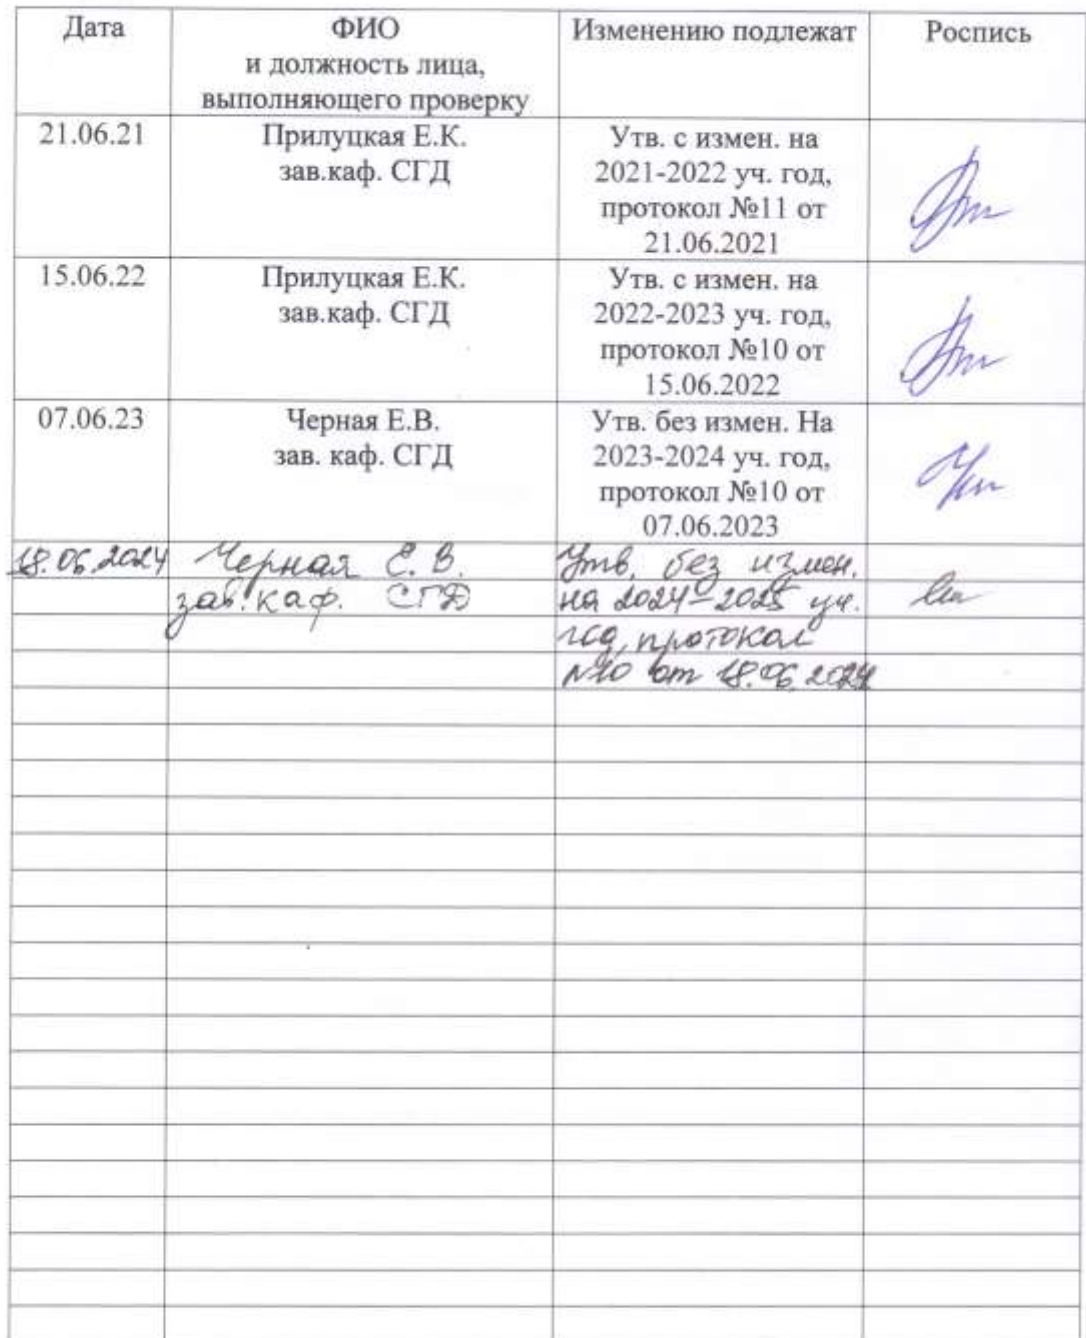 Дата
ФИО
и должность лица,
выполняющего проверку
Изменению подлежат
Роспись
21.06.21
Прилуцкая Е.К.
зав.каф. СГД
Утв. с измен. на
2021-2022 уч. год,
протокол №11 от
21.06.2021
15.06.22
Прилуцкая Е.К.
зав.каф. СГД
Утв. с измен. на
2022-2023 уч. год,
протокол №10 от
15.06.2022
07.06.23
Черная Е.В.
зав. каф. СГД
Утв. без измен. На
2023-2024 уч. год,
протокол №10 от
07.06.2023
18.06.2024
Черная Е. В.
зав. каф. СГД
Утв. без измен.
на 2024-2025 уч.
год, протокол
№10 от 18.06.2024